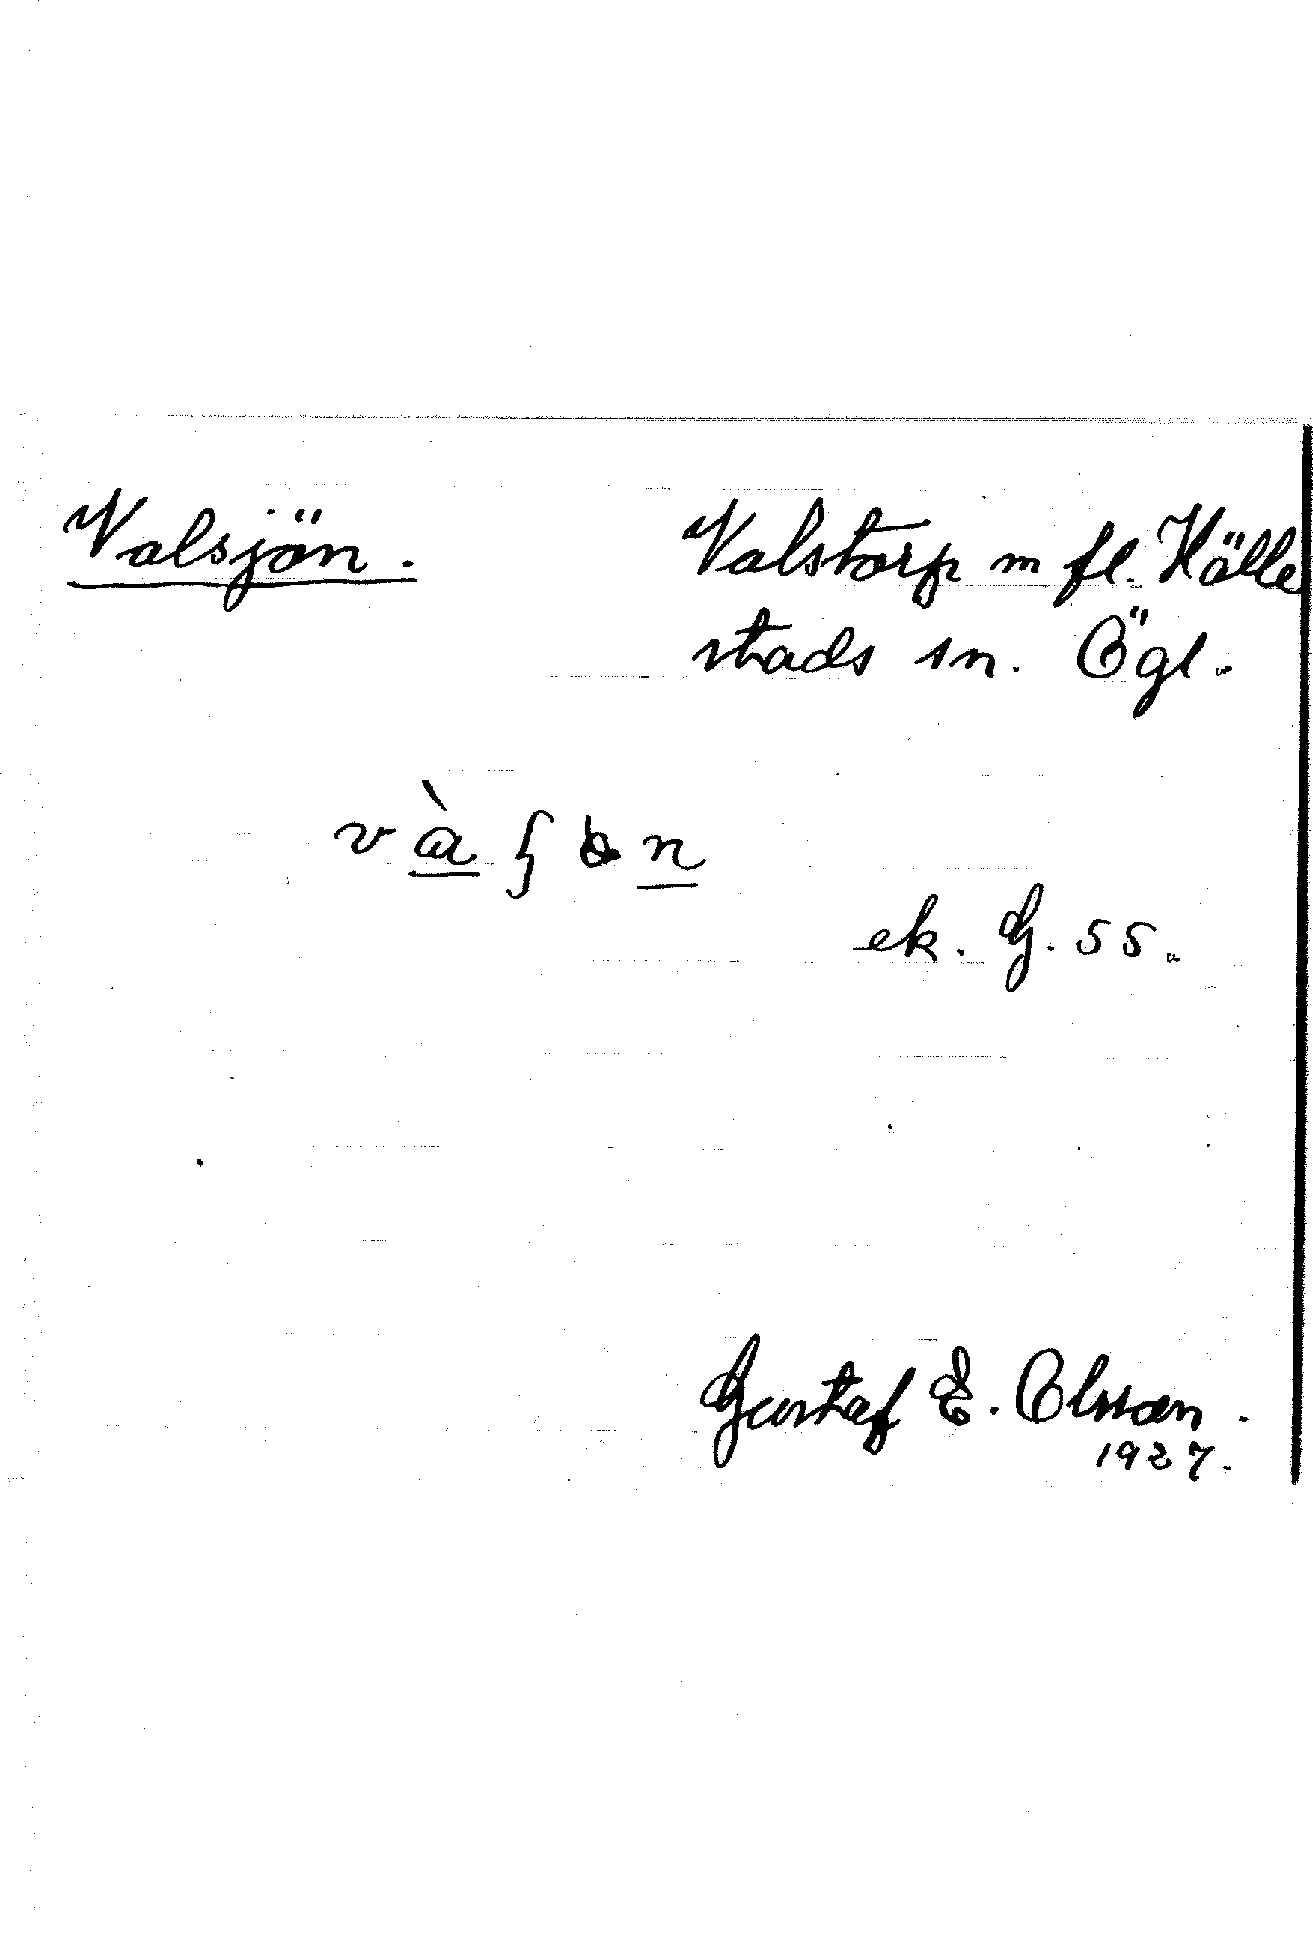 Valsjön.
Valstorp m fl. Hälle
stads sn. Ögl.
ek. G. 55.
Gustaf E. Olsson.
1927.